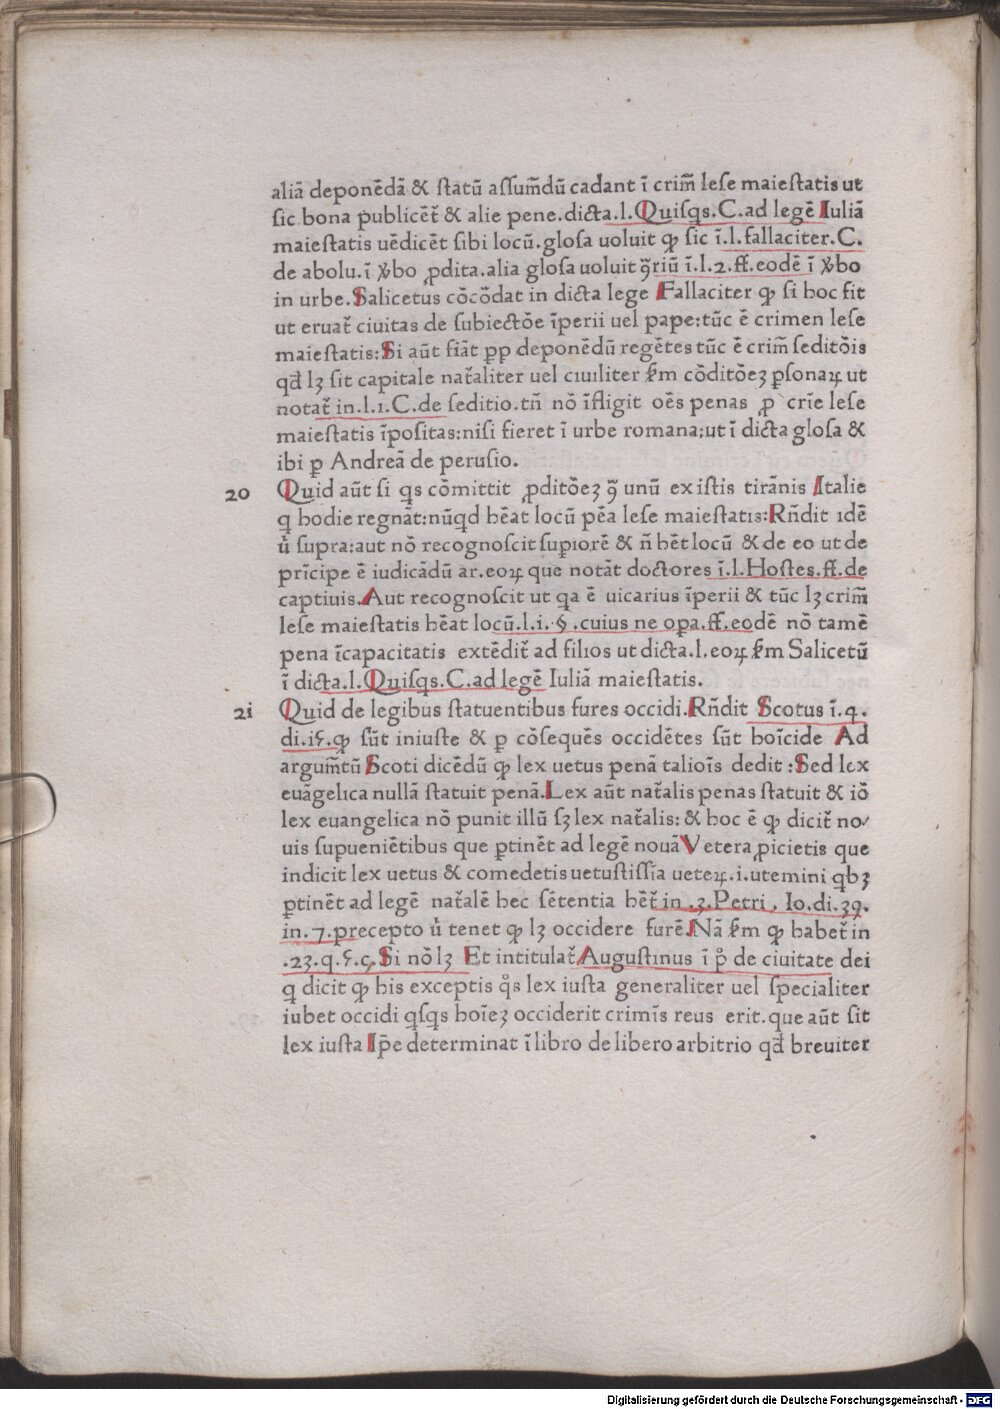 aliā deponēdā & ſtatū aſſum̄dū cadant ī crim̄ leſe maieſtatis ut
ſic bona publicēt̄ & alie pene.dicta.l.Quiſqs.C.ad legē Iuliā
maieſtatis uēdicēt ſibi locū.gloſa uoluit ꝙ ſic ī.l.fallaciter.C.
de abolu.ī ꝟbo ꝓdita.alia gloſa uoluit ꝯ̄riū ī.l.2.ff.eodē ī ꝟbo
in urbe.Salicetus cōcōdat in dicta lege Fallaciter ꝙ ſi hoc fit
ut eruat̄ ciuitas de ſubiectōe īperii uel pape:tūc ē crimen leſe
maieſtatis:Si aūt fiāt ꝑp deponēdū regētes tūc ē crim̄ ſeditōis
qd̄ lꝫ ſit capitale nat̄aliter uel ciuiliter ẜm cōditōeꝫ ꝑſonaꝝ ut
notat̄ in.l.1.C.de ſeditio.tn̄ nō īfligit oēs penas ꝓ crīe leſe
maieſtatis īpoſitas:niſi fieret ī urbe romana;ut ī dicta gloſa &
ibi ꝑ Andreā de peruſio.
20 Quid aūt ſi qs cōmittit ꝓditōeꝫ ꝯ̄ unū ex iſtis tirānis Italie
q hodie regnāt:nūqd hēat locū pēa leſe maieſtatis:Rn̄dit idē
ut̄ ſupra:aut nō recognoſcit ſupiorē & n̄ hēt locū & de eo ut de
prīcipe ē iudicādū ar.eoꝝ que notāt doctores ī.l.Hoſtes.ff.de
captiuis.Aut recognoſcit ut qa ē uicarius īperii & tūc lꝫ crim̄
leſe maieſtatis hēat locū.l.i.§.cuius ne oꝑa.ff.eodē nō tamē
pena īcapacitatis extēdit̄ ad filios ut dicta.l.eoꝝ ẜm Salicetū
ī dicta.l.Quiſqs.C.ad legē Iuliā maieſtatis.
2i Quid de legibus ſtatuentibus fures occidi.Rn̄dit Scotus ī.4.
di.i5.ꝙ ſūt iniuſte & ꝑ cōſequēs occidētes ſūt hoīcide Ad
argum̄tū Scoti dicēdū ꝙ lex uetus penā talioīs dedit :Sed lex
euāgelica nullā ſtatuit penā.Lex aūt nat̄alis penas ſtatuit & iō
lex euangelica nō punit illū ſꝫ lex nat̄alis: & hoc ē ꝙ dicit̄ no⸗
uis ſupueniētibus que ꝑtinēt ad legē nouā Vetera ꝓicietis que
indicit lex uetus & comedetis uetuſtiſſīa ueteꝝ.i.utemini qbꝫ
ꝑtinēt ad legē nat̄alē hec ſētentia hēt̄ in .3.Petri . Io.di.39.
in.7.precepto ut̄ tenet ꝙ lꝫ occidere furē.Nā ẜm ꝙ habet̄ in
.23.q.5.c.Si nō lꝫ Et intitulat̄ Auguſtinus ī pº de ciuitate dei
q dicit ꝙ his exceptis qͦs lex iuſta generaliter uel ſpecialiter
iubet occidi qſqs hoīeꝫ occiderit crimīs reus erit.que aūt ſit
lex iuſta Ip̄e determinat ī libro de libero arbitrio qd̄ breuiter
Digitalisierung gefördert durch die Deutsche Forschungsgemeinschaft - DFG